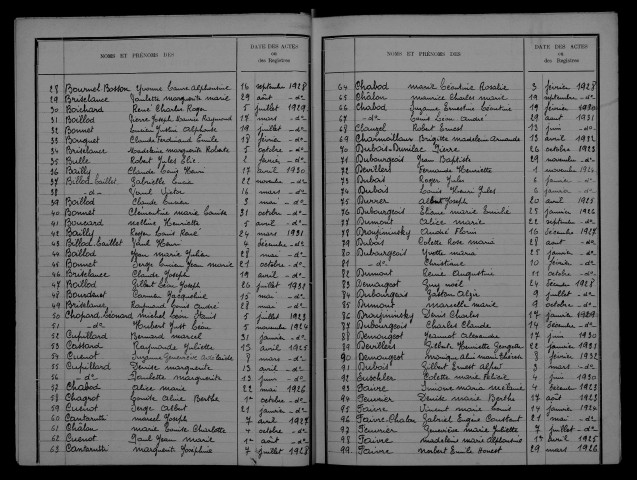 NOMS ET PRÉNOMS DES
DATE DES ACTES
ou
des Registres
28 Bournel Bosson Yvonne Laure Alphonsine 16 septembre 1928
29 Briselance Paulette marguerite marie 29 août -d°
30 Boichard René Charles Roger 5 juillet 1929
31 Boillod Pierre Joseph Francis Raymond 17 mars -d°
32 Bonnet Lucien Justin Alphonse 19 juillet -d°
33 Bourquet Claude Ferdinand Emile 18 février -d°
34 Briselance Madeleine marguerite 5 octobre -d°
35 Bulle Robert Jules Elie 2 février -d°
36 Bailly Claude Henri 17 avril 1930
37 Billod-Laillet Gabrielle 22 novembre -d°
38 -d- Paul Victor 16 mars -d°
39 Boillod Claude Lucien 3 mai -d°
40 Bonnet Clementine marie Louise 31 octobre -d°
41 Bonnard Henriette 5 avril -d°
42 Bailly Roger Louis René 24 mars 1931
43 Billod-Laillet Paul Henri 4 décembre -d°
44 Boillod Yvon marie Julien 28 mai -d°
45 Bonnet Serge Lucien Jean marie 21 octobre -d°
46 Briselance Claude Joseph 19 avril -d°
47 Boillod Gilbert Léon Joseph 26 juillet 1932
48 Carmen Jacqueline 15 mai -d°
49 Briselance Raymond Louis André 28 mai -d°
50 Chopard Léonard michel Léon 5 juillet 1923
51 -d- Humbert Just Léon 5 novembre 1924
52 Cupillard Bernard marcel 31 janvier -d°
53 Raymonde Juliette 15 avril 1925
54 Cuenot Suzanne Geneviève 8 mars -d°
55 Cupillard Denise marguerite 13 avril -d°
56 -d- Paulette marguerite 13 juin -d°
57 Chabod Alice marie 22 mai 1926
58 Chagrot Louise Aline Berthe 1er octobre -d°
59 Cuenot Serge Albert 21 janvier -d°
60 Cantarutti marcel Joseph 7 avril 1927
61 Châlon marie Louise Charlotte 4 octobre -d°
62 Cuenot Paul Jean marie 1er août -d°
63 Cantarutti marguerite Joséphine 7 juillet 1928
NOMS ET PRÉNOMS DES
DATE DES ACTES
ou
des Registres
64 Chabod marie Léontine Rosalie 3 février 1928
65 Châlon maurice Charles marcel 19 septembre -d°
66 Chabod Suzanne Ernestine Léontine 19 février 1930
67 -d° Louis Léon André 29 août 1931
68 Clauzel Robert Ernest 12 juin -d°
69 Charmoillaux Brigitte madeleine 13 avril 1932
70 Dubois-Dunilac Pierre 26 octobre 1923
71 Dubourgeois Jean Baptiste 29 novembre -d°
72 Devillers Fernande Henriette 1 novembre 1924
73 Dubois Roger Jules 6 janvier -d°
74 Dubois Louis Henri Jules 6 janvier -d°
75 Durrer Albert Joseph 20 avril 1925
76 Dubourgeois Eliane marie Emilie 25 janvier 1926
77 Dumont Alice marie 22 septembre -d°
78 André Florin 16 décembre 1927
79 Dubois Colette Rose marie 28 août -d°
80 Dubourgeois Yvette maria 25 janvier -d°
81 -d° Christiane 20 février -d°
82 Dumont Renée Augustine 11 octobre -d°
83 Demougeot Guy noël 24 décembre 1928
84 Dubourgeois Gaston Alzir 9 juillet -d°
85 Dumont marcelle marie 9 octobre -d°
86 Denis Charles 17 janvier 1929
87 Dubourgeois Charles Claude 14 décembre -d°
88 Demougeot Jeannot Alexandre 17 juin 1930
89 Devillers Gilberte Henriette Georgette 22 janvier 1931
90 Demougeot monique Aline marie Thérèse 8 février 1932
91 Dubois Gilbert Ernest Albert 3 mars -d°
92 Euschler Colette marie Félicie 4 juin 1930
93 Faivre Simone marie mélanie 4 décembre 1923
94 Feuvrier Denise marie Berthe 17 août 1923
95 Faivre Vincent marie Louis 14 janvier 1924
96 Faivre-Chalon Gabriel Eugène Constant 21 mai -d°
97 Feuvrier Geneviève marie Juliette 7 juillet -d°
98 Faivre Madeleine marie Alphonsine 1er avril 1925
99 Faivre norbert Emile Honest 29 mars 1926